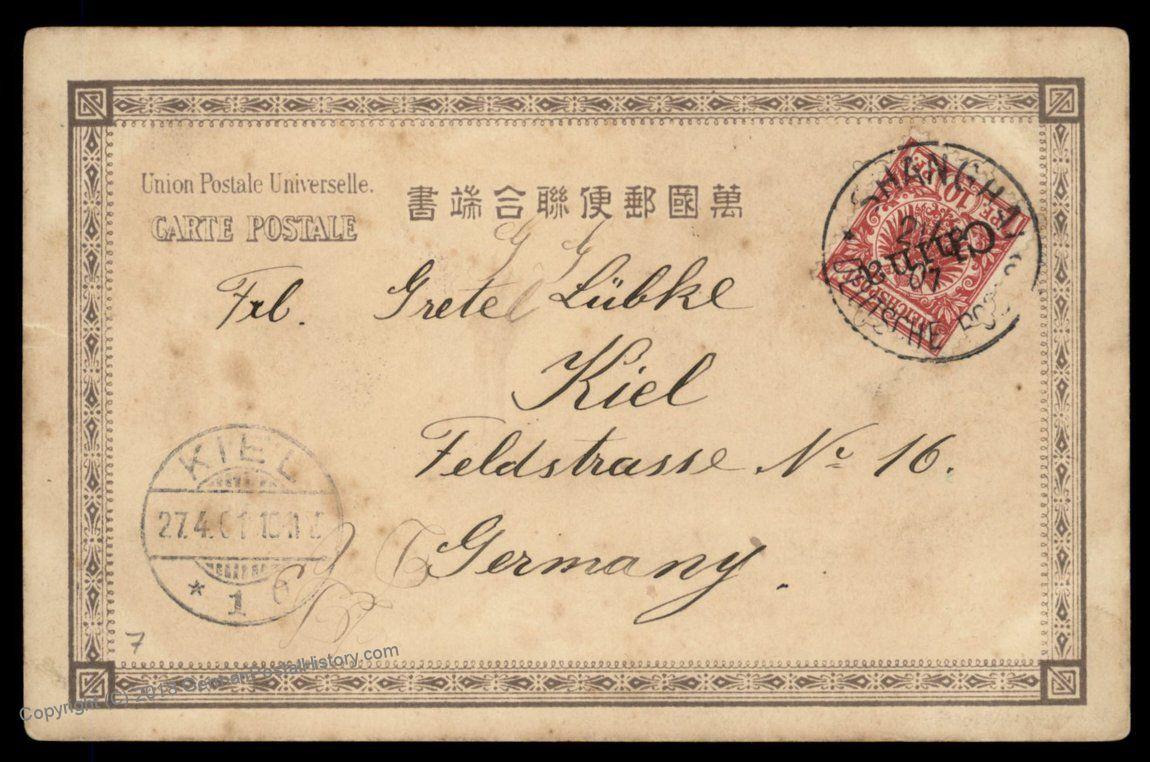 Union Postale Universelle.
CARTE POSTALE
萬國郵便聯合端書
SHANGHAI
DEUTSCHE POST
China
10
REICHSPOST
Frl. Grete Lübke
Kiel
Feldstrasse No 16.
Germany.
KIEL
27.4.01
* 1
7
Copyright (C) 2018 GermanPostalHistory.com